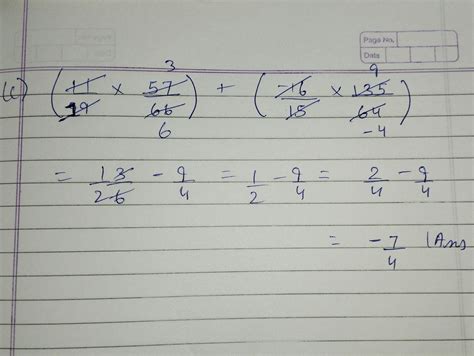 Page No.
Date
3 9
(c) (11/19 × 57/66) + (-16/15 × 135/64)
6 -4
= 13/26 - 9/4 = 1/2 - 9/4 = 2/4 - 9/4
= -7/4 | Ans